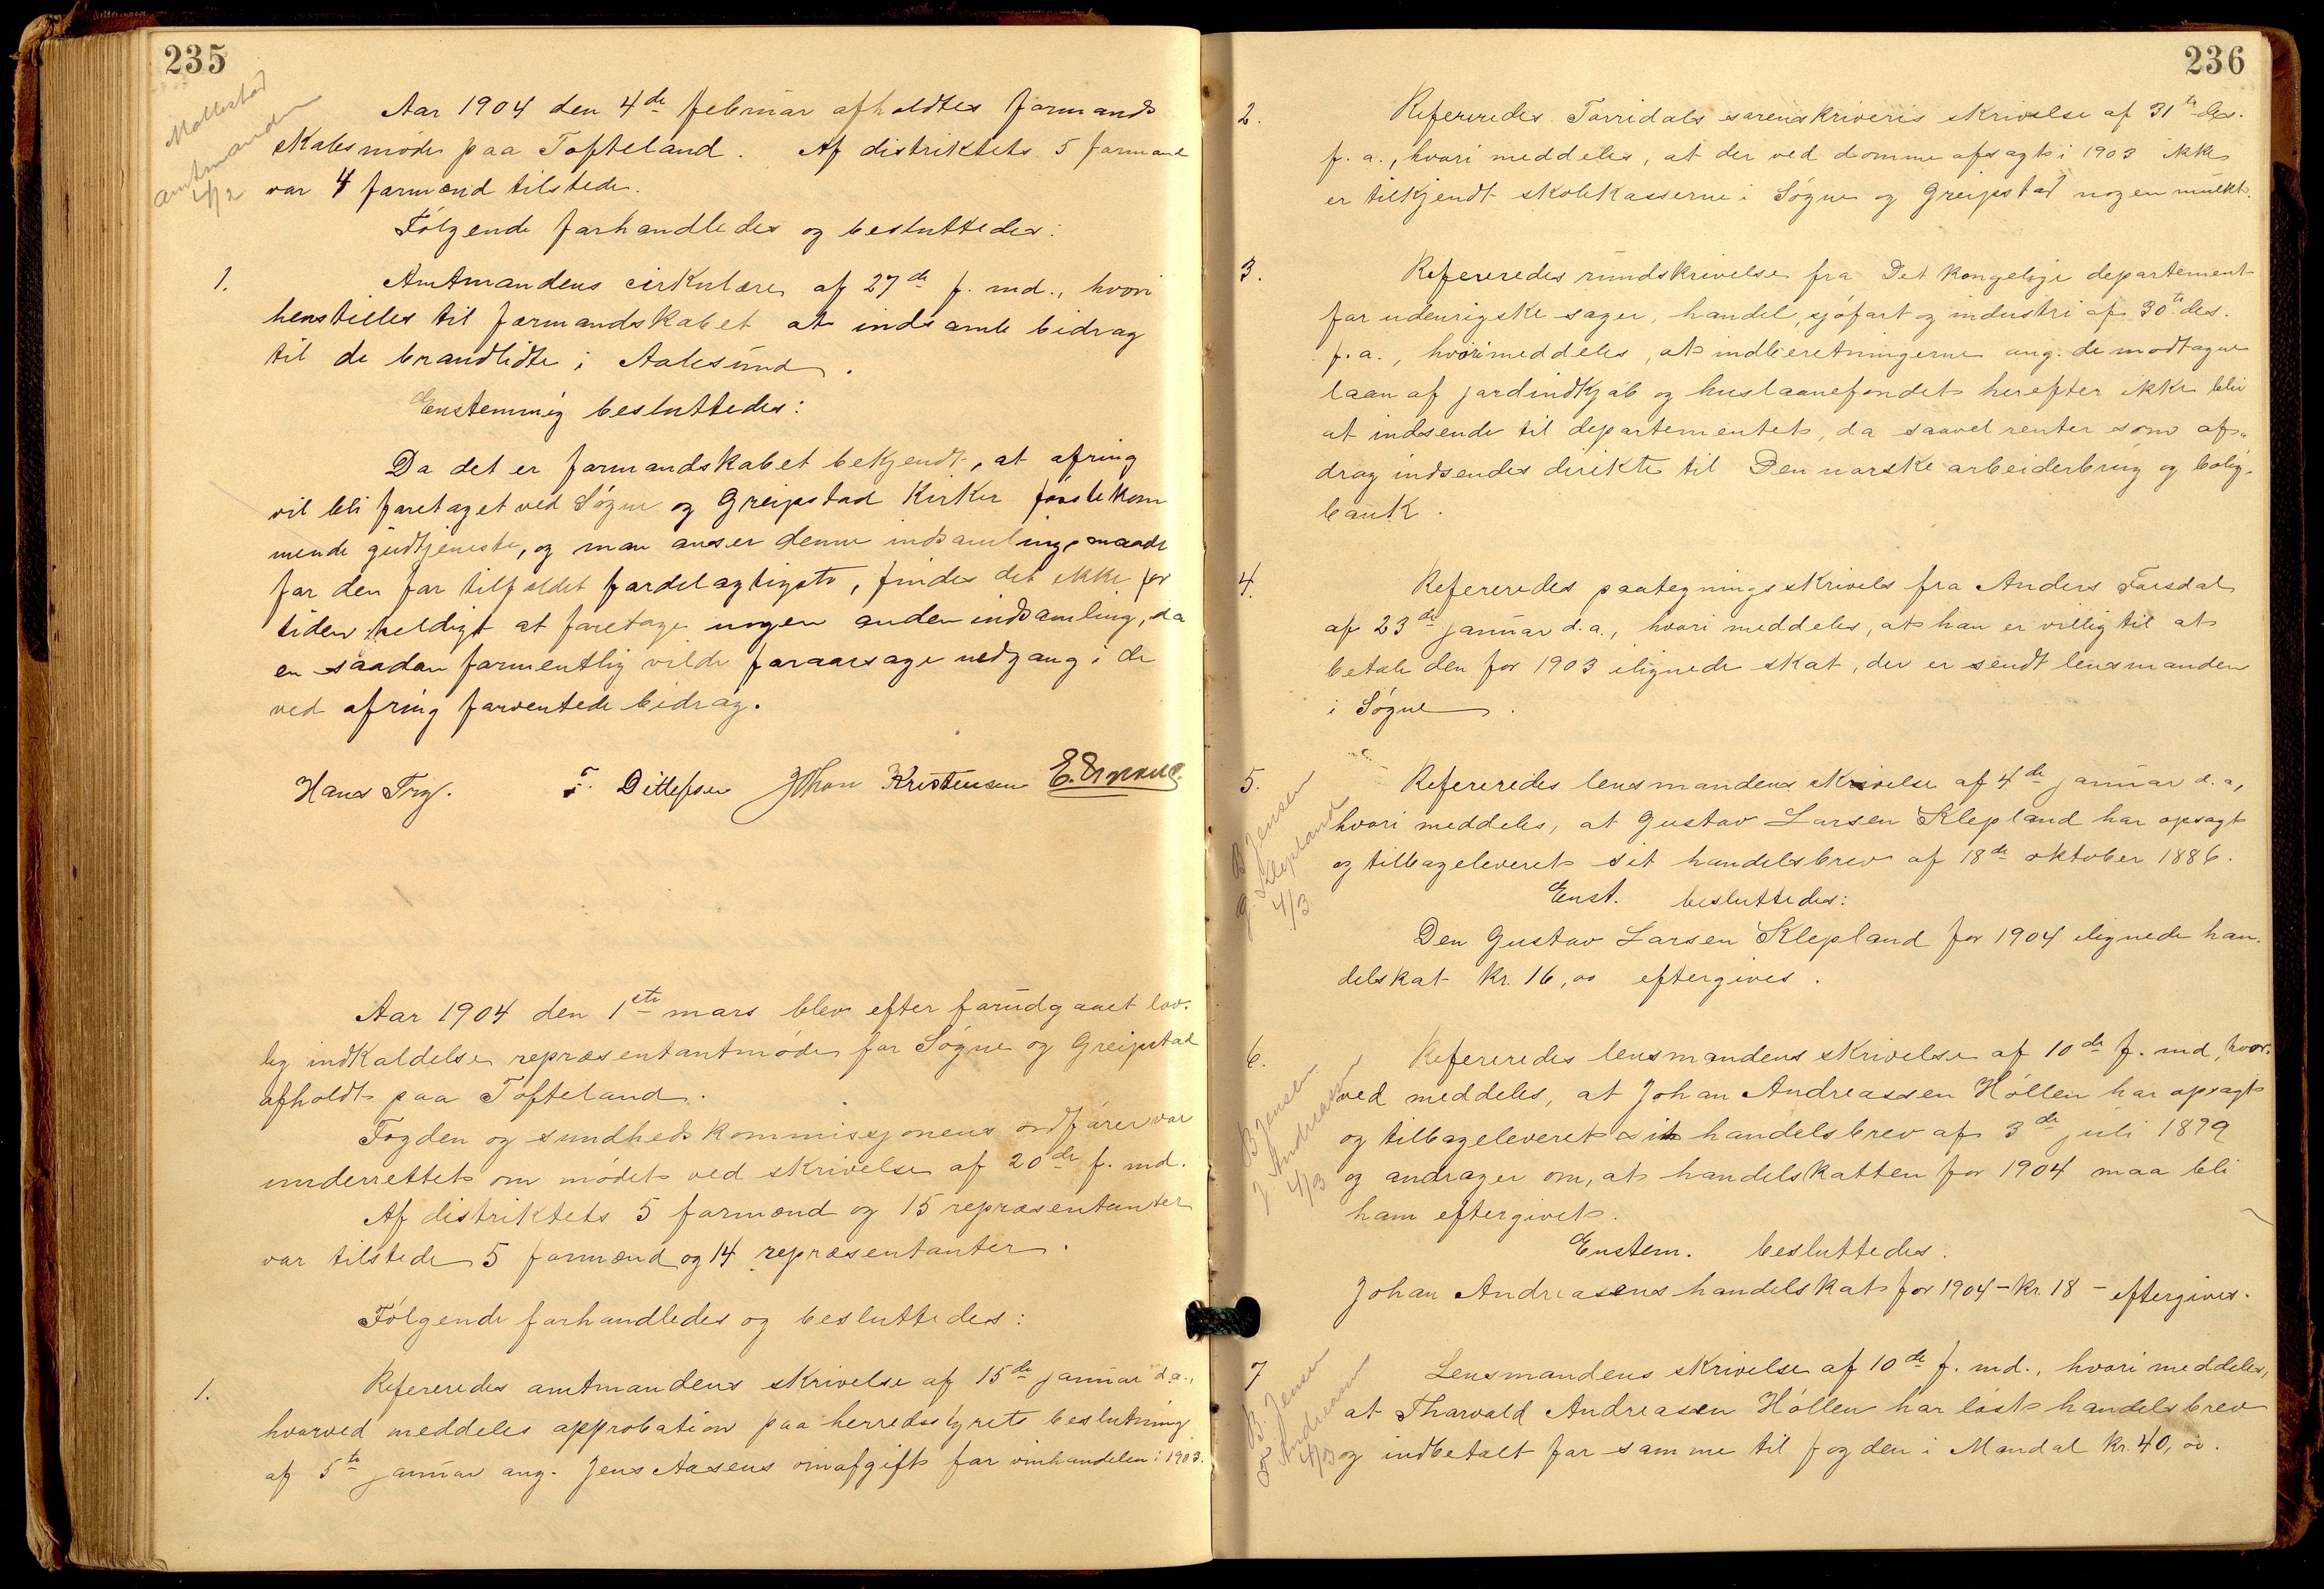 235
Mollestad
Amtmanden
4/2
Aar 1904 den 4de februar afholdtes formand-
skabsmøde paa Tofteland. Af distriktets 5 formænd
var 4 formænd tilstede.
Følgende forhandledes og besluttedes:
1. Amtmandens cirkulære af 27de f. md., hvori
henstilles til formandskabet at indsamle bidrag
til de brandlidte i Aalesund.
Enstemmig besluttedes:
Da det er formandskabet bekjendt, at ofring
vil bli foretaget ved Søgne og Greipstad Kirker førstekom
mende gudtjeneste, og man anser denne indsamlingsmaade
for den for tilfældet fordelagtigste, findes det ikke for
tiden heldigt at foretage nogen anden indsamling, da
en saadan formentlig vilde foraarsage nedgang i de
ved ofring forventede bidrag.
Hans Try. T. Ditlefsen Johan Kristensen
Aar 1904 den 1ste mars blev efter forudgaaet lov-
lig indkaldelse repræsentantmøde for Søgne og Greipstad
afholdt paa Tofteland.
Fogden og sundhedskommissjonens ordfører var
underrettet om mødet ved skrivelse af 20de f. md.
Af distriktets 5 formænd og 15 repræsentanter
var tilstede 5 formænd og 14 repræsentanter.
Følgende forhandledes og besluttedes:
1. Refereredes amtmandens skrivelse af 15de januar d.a.,
hvorved meddeles approbation paa herredsstyrets beslutning
af 5te januar ang. Jens Aasens vinafgift for vinhandelen i 1903.
236
2. Refereredes Torridals sorenskriveris skrivelse af 31te des.
f. a., hvori meddeles, at der ved domme afsagt i 1903 ikke
er tilkjendt skolekasserne i Søgne og Greipstad nogen mulkt.
3. Refereredes rundskrivelse fra Det kongelige departement
for udenrigske sager, handel, sjøfart og industri af 30te des.
f. a., hvori meddeles, at indberetningerne ang. de modtagne
laan af jordindkjøb og huslaanefondet herefter ikke blir
at indsende til departementet, da saavel renter som af-
drag indsendes direkte til Den norske arbeiderbrug og bolig-
bank.
4. Refereredes paategningsskrivels fra Anders Forsdal
af 23de januar d.a., hvori meddeles, at han er villig til at
betale den for 1903 ilignede skat, der er sendt lensmanden
i Søgne.
B Jensen
G. Klepland
4/3
5. Refereredes lensmandens skrivelse af 4de januar d. a,
hvori meddeles, at Gustav Larsen Klepland har opsagt
og tilbageleveret sit handelsbrev af 18de oktober 1886.
Enst. besluttedes:
Den Gustav Larsen Klepland for 1904 ilignede han-
delskat kr. 16,00 eftergives.
B Jensen
J Andreasen
4/3
6. Refereredes lensmandens skrivelse af 10de f. md, hvor-
ved meddeles, at Johan Andreassen Høllen har opsagt
og tilbageleveret sit handelsbrev af 3de juli 1899
og andrager om, at handelskatten for 1904 maa bli
ham eftergivet.
Enstem. besluttedes.
Johan Andreasens handelskat for 1904 - kr. 18 - eftergives.
B. Jensen
T Andreasen
4/3
7 Lensmandens skrivelse af 10de f. md., hvori meddeles,
at Tharvald Andreasen Høllen har løst handelsbrev
og indbetalt for samme til fogden i Mandal kr. 40,00.